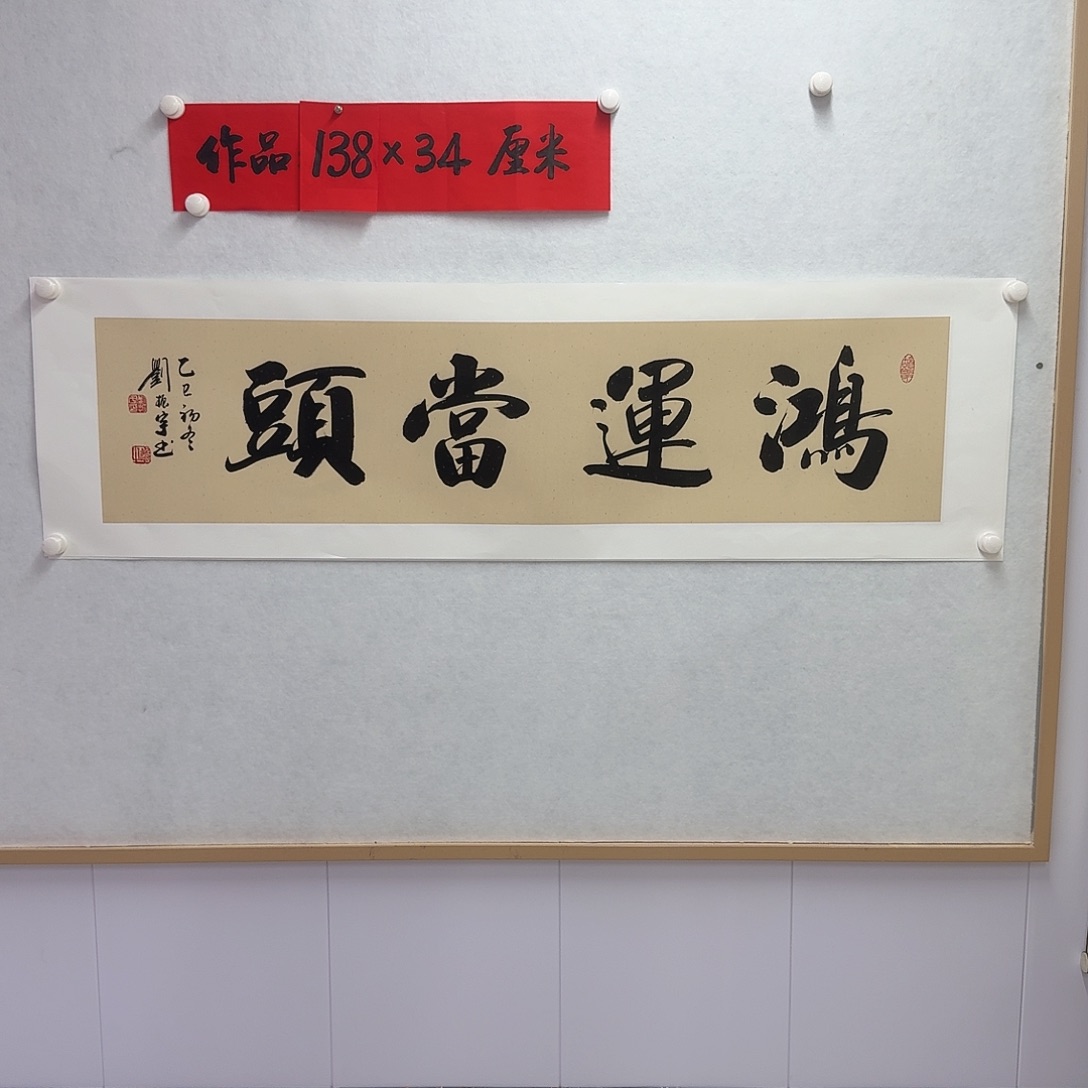 作品 138×34 厘米
鴻運當頭
乙巳初冬
劉振宇书